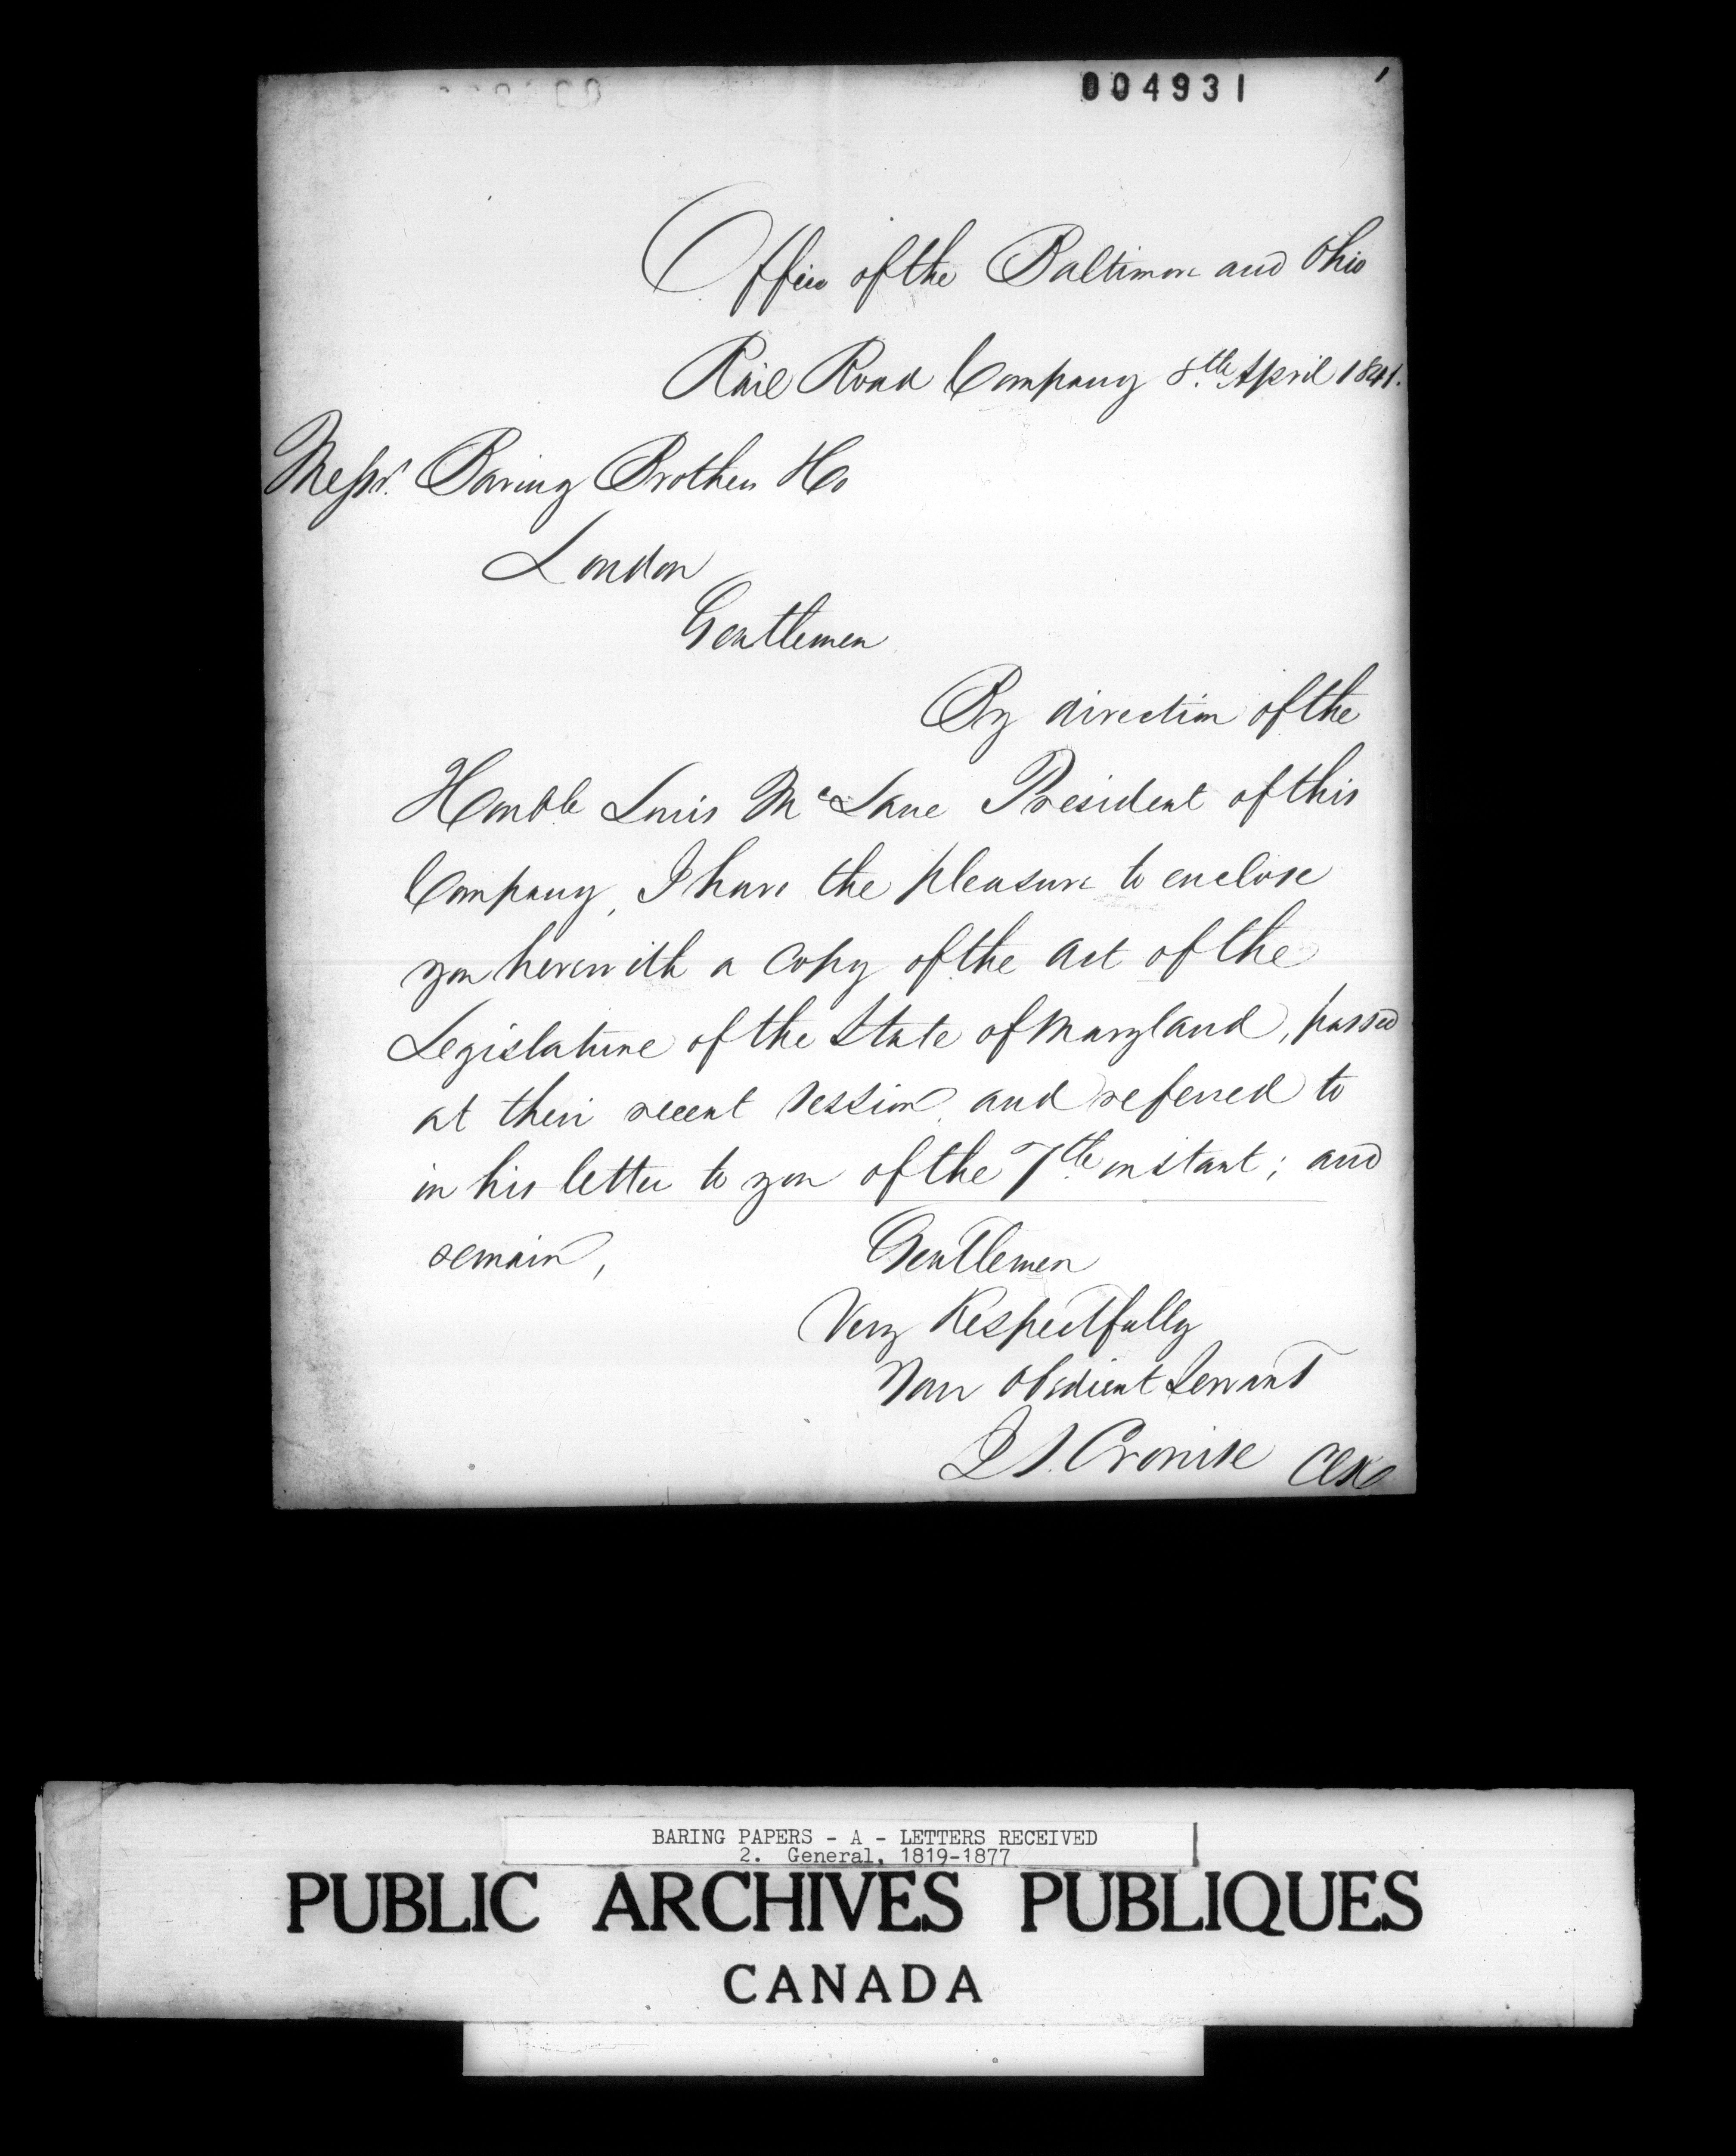 004931
Office of the Baltimore and Ohio
Rail Road Company 8th April 1841.
Messrs. Baring Brothers & Co
London
Gentlemen
By direction of the
Honble Louis McLane President of this
Company, I have the pleasure to enclose
you herewith a copy of the act of the
Legislature of the State of Maryland, passed
at their recent session, and referred to
in his letter to you of the 7th instant; and
remain,
Gentlemen
Very Respectfully
Your obedient Servant
J. I. Cronise Clk
BARING PAPERS - A - LETTERS RECEIVED
2. General, 1819-1877
PUBLIC ARCHIVES PUBLIQUES
CANADA